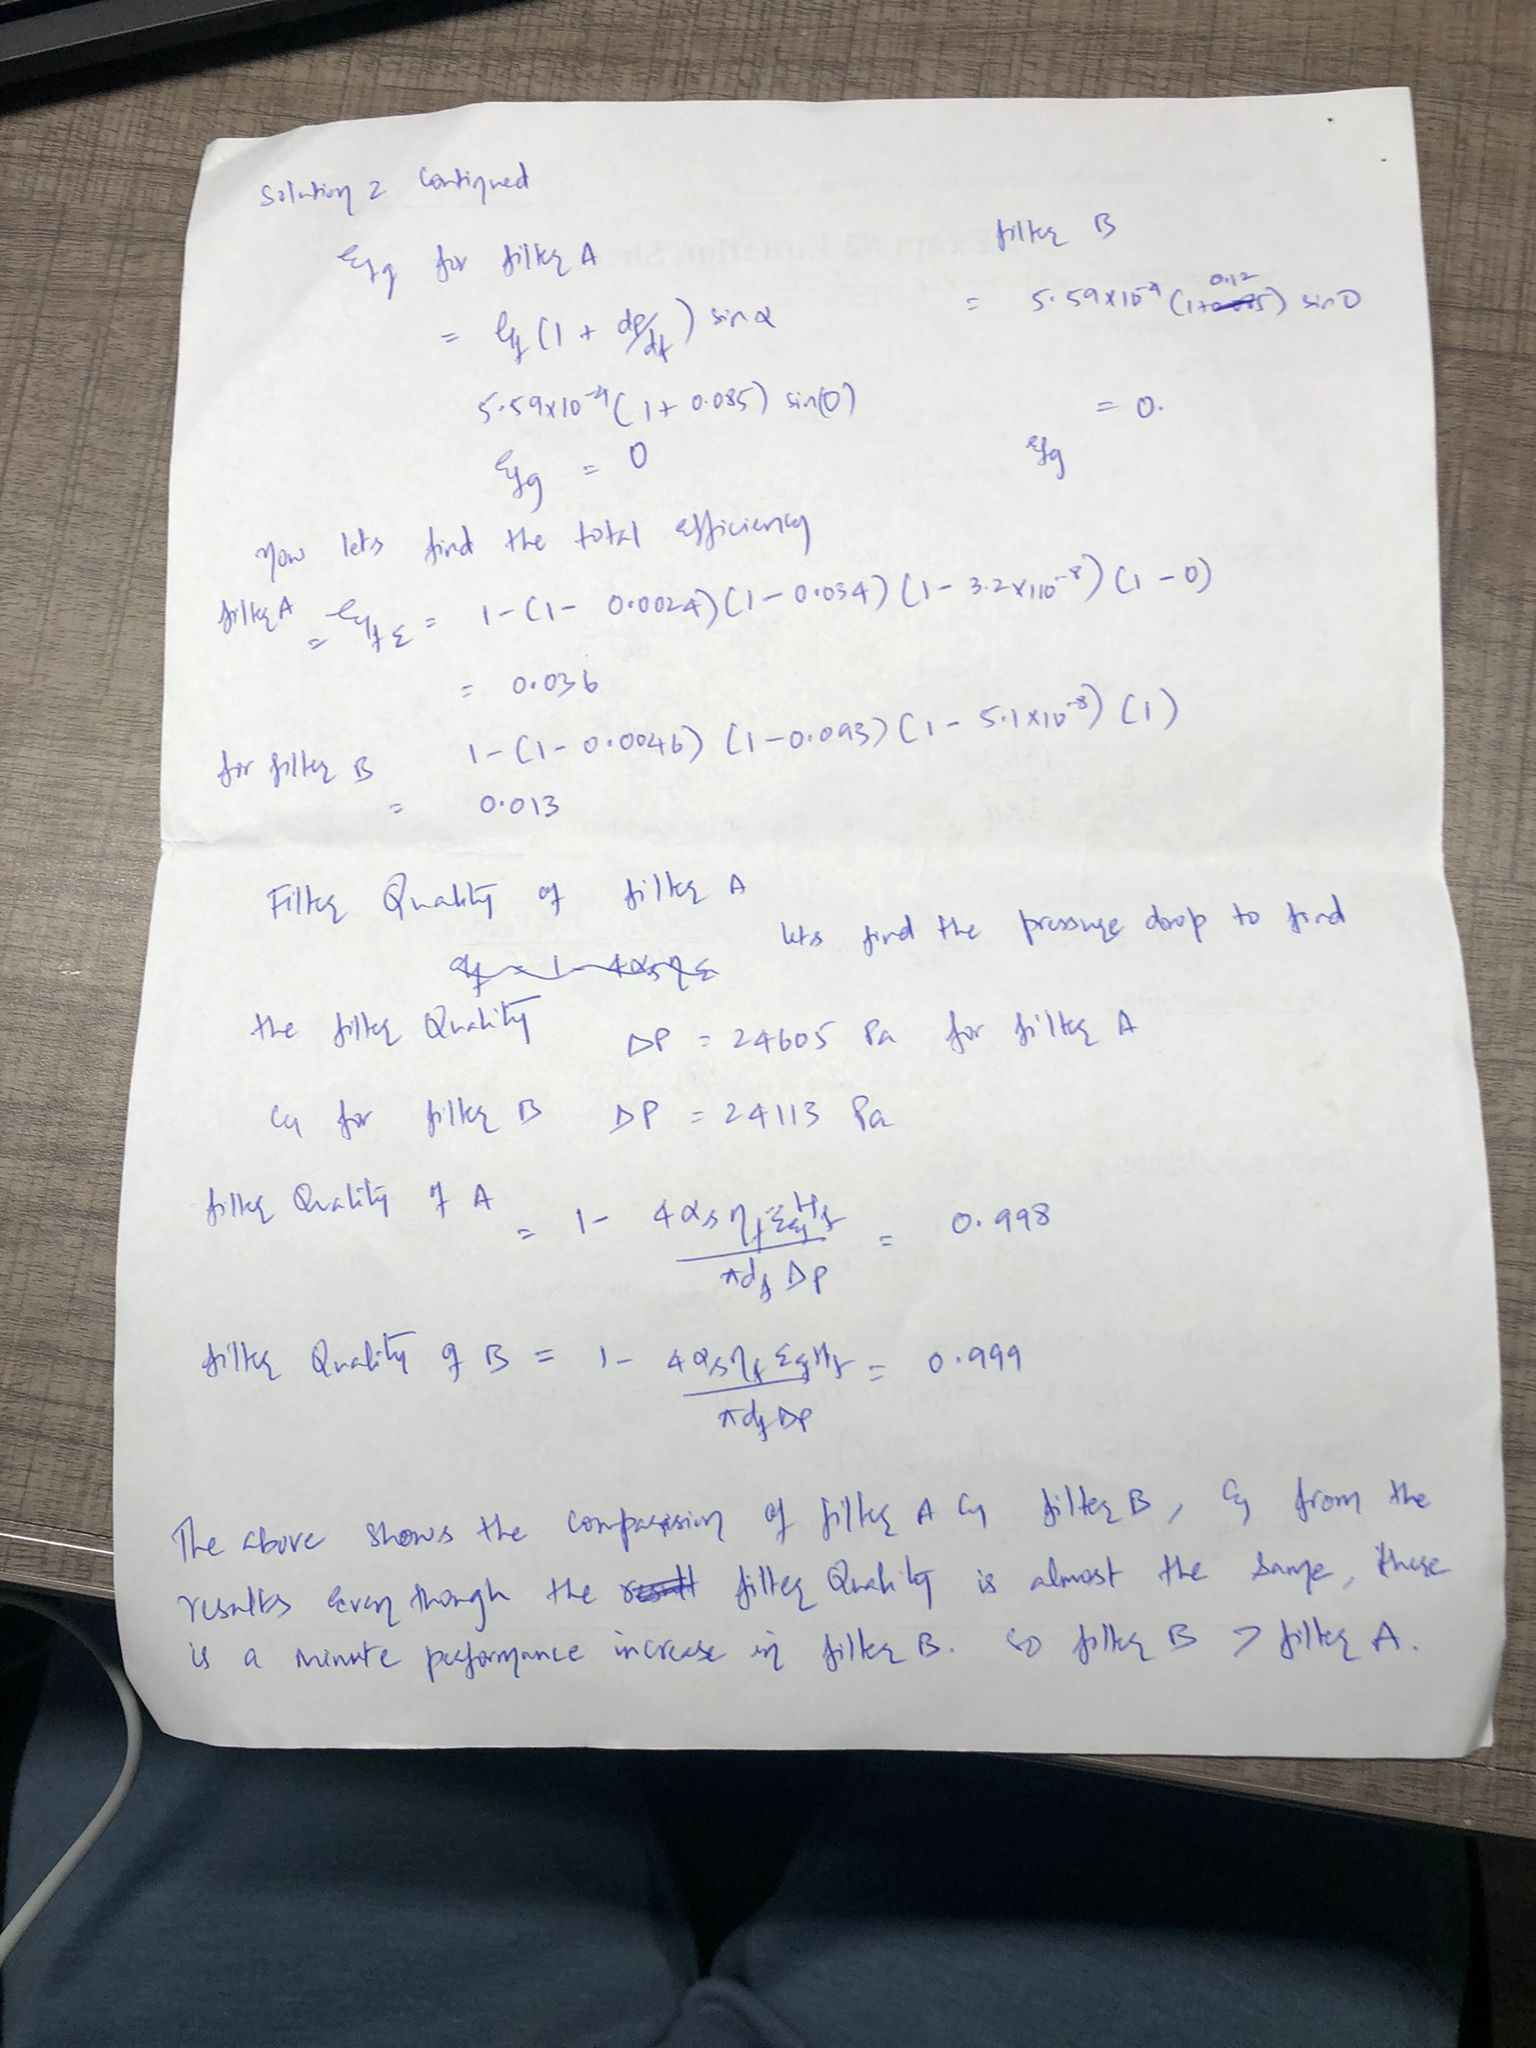 Solution 2 Continued
filter B
ηfg for filter A
= ηf (1 + dp/df) sin α
= 5.59x10⁻⁴ (1+0.12) sin 0
5.59x10⁻⁴ (1 + 0.085) sin(0)
= 0.
ηfg = 0
ηfg
Now lets find the total efficiency
filter A = ηfΣ = 1-(1- 0.0024)(1-0.034)(1-3.2x10⁻⁸)(1-0)
= 0.036
for filter B 1-(1-0.0046) (1-0.093) (1-5.1x10⁻⁸) (1)
= 0.013
Filter Quality of filter A
lets find the pressure drop to find
the filter Quality ΔP = 24605 Pa for filter A
for filter B ΔP = 24113 Pa
filter Quality of A = 1- 4αsηfΣHf / πdfΔP = 0.998
filter Quality of B = 1- 4αsηfΣHf / πdfΔP = 0.999
The above shows the comparision of filter A & filter B, & from the
results even though the filter Quality is almost the same, there
is a minute performance increase in filter B. So filter B > filter A.